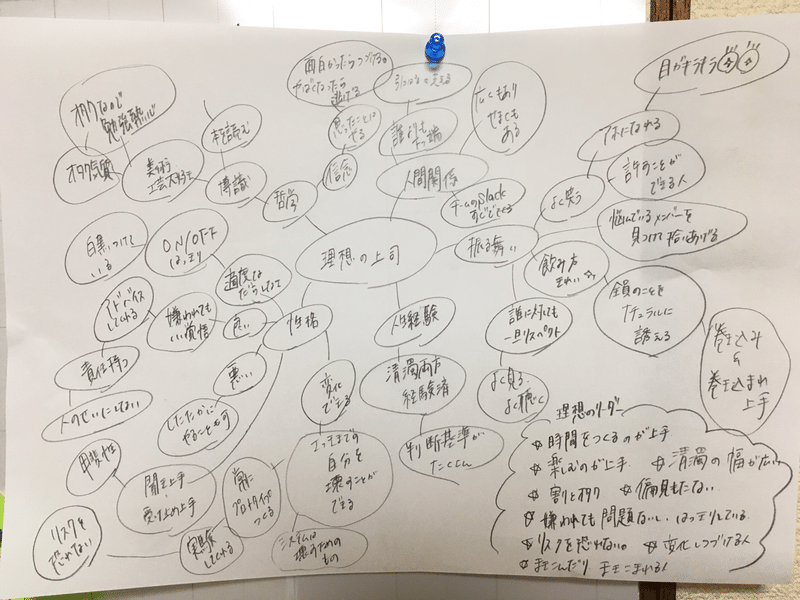 面白かったらつづける。
やばくなったら
逃げる
目がキラキラ
オタクなので
勉強熱心
広くもあり
せまくも
ある
誰よりも
思ったことは
やる
信念
オタク気質
美術
工芸大好き
博識
哲学
人間関係
チームのSlack
すぐできる
よく笑う
許すことが
できる人
悩んでいるメンバーを
見つけて拾いあげる
白黒つけて
いる
ON/OFF
はっきり
理想の上司
振る舞い
飲み方
きれい
適度な
だらしなさ
アドバイス
してくれる
嫌われても
いい覚悟
良い
性格
人生経験
誰に対しても
一旦リスペクト
全員のことを
ナチュラルに
誘える
巻き込み
&
巻き込まれ
上手
責任持つ
悪い
変化
できる
清濁両方
経験済
よく見る、
よく聴く
人のせいにしない
したたかに
やることもす
判断基準が
たくさん
甲斐性
聞き上手
受け止め上手
常に
プロトタイプ
つくる
今までの
自分を
壊すことが
できる
リスクを
恐れない
実験
してくれる
システムは
壊すための
もの
理想のリーダー
☆時間をつくるのが上手
☆楽しむのが上手 ☆清濁の幅が広い
☆割とオタク ☆偏見もたない
☆嫌われても問題ないし、はっきりしている
☆リスクを恐れない。 ☆変化しつづける人
☆まきこんだり、まきこまれる人